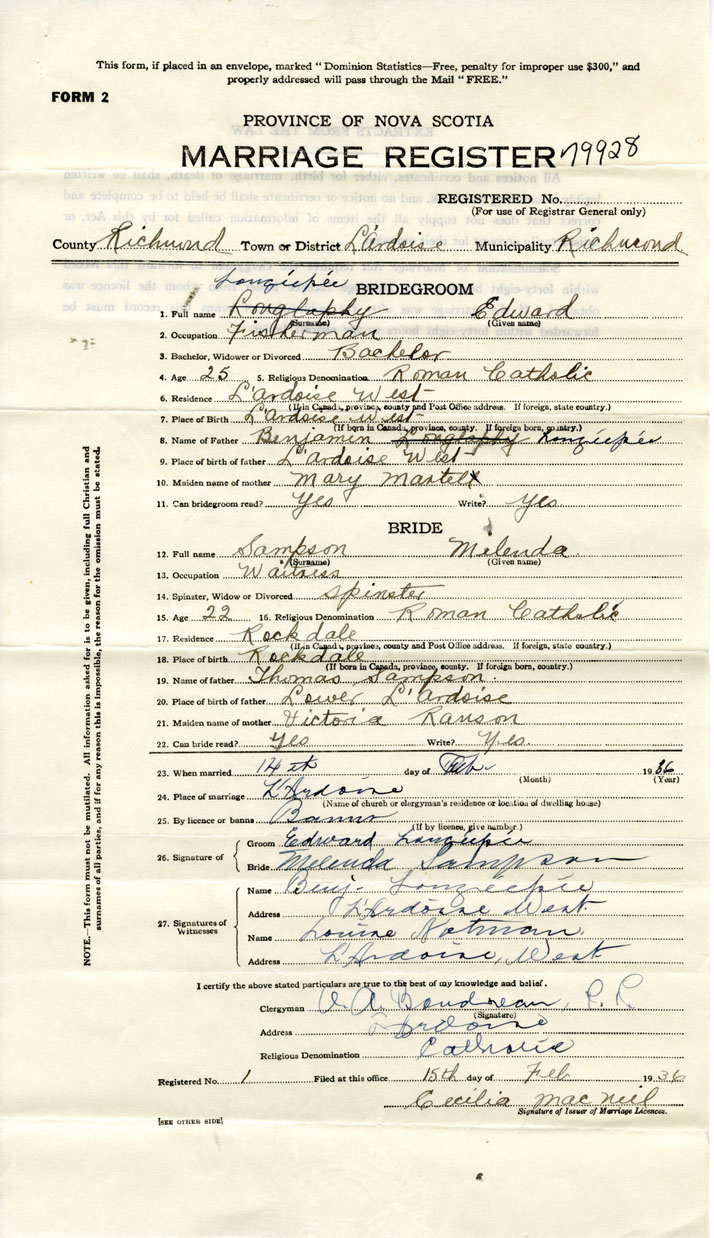 This form, if placed in an envelope, marked "Dominion Statistics—Free, penalty for improper use $300," and
properly addressed will pass through the Mail "FREE."
FORM 2
PROVINCE OF NOVA SCOTIA
MARRIAGE REGISTER 79928
REGISTERED No.
(For use of Registrar General only)
County Richmond Town or District L'Ardoise Municipality Richmond
Longuépée
BRIDEGROOM
1. Full name Longlaphy Edward
(Surname) (Given name)
2. Occupation Fisherman
3. Bachelor, Widower or Divorced Bachelor
4. Age 25 5. Religious Denomination Roman Catholic
6. Residence L'Ardoise West
(If in Canada, province, county and Post Office address. If foreign, state country.)
7. Place of Birth L'Ardoise West
(If born in Canada, province, county. If foreign born, country.)
8. Name of Father Benjamin Longlaphy Longuépée
9. Place of birth of father L'Ardoise West
10. Maiden name of mother Mary Martell
11. Can bridegroom read? Yes Write? Yes
BRIDE
12. Full name Sampson Melenda
(Surname) (Given name)
13. Occupation Waitress
14. Spinster, Widow or Divorced Spinster
15. Age 22 16. Religious Denomination Roman Catholic
17. Residence Rockdale
(If in Canada, province, county and Post Office address. If foreign, state country.)
18. Place of birth Rockdale
(If born in Canada, province, county. If foreign born, country.)
19. Name of father Thomas Sampson.
20. Place of birth of father Lower L'Ardoise
21. Maiden name of mother Victoria Ranson
22. Can bride read? Yes Write? Yes.
23. When married 14th day of Feb. 1936
(Month) (Year)
24. Place of marriage L'Ardoise
(Name of church or clergyman's residence or location of dwelling house)
25. By licence or banns Banns
(If by licence, give number.)
26. Signature of Groom Edward Longuepée
Bride Melenda Sampson
27. Signatures of Witnesses
Name Benj. Longuepée
Address L'Ardoise West
Name Louise Notman
Address L'Ardoise, West
I certify the above stated particulars are true to the best of my knowledge and belief.
Clergyman A. A. Boudreau, P. P.
(Signature)
Address L'Ardoise
Religious Denomination Catholic
Registered No. 1 Filed at this office 15th day of Feb 1936
Cecilia MacNeil
Signature of Issuer of Marriage Licences.
[SEE OTHER SIDE]
NOTE.—This form must not be mutilated. All information asked for is to be given, including full Christian and
surnames of all parties, and if for any reason this is impossible, the reason for the omission must be stated.